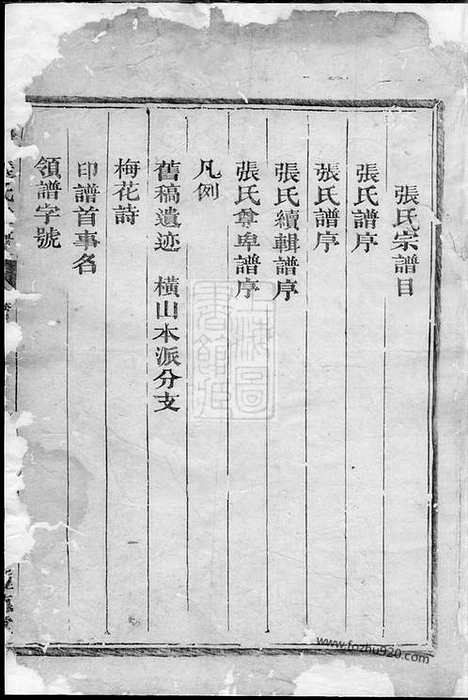 張氏宗譜目
張氏譜序
張氏譜序
張氏續輯譜序
張氏尊卑譜序
凡例
舊稿遺迹 橫山本派分支
梅花詩
印譜首事名
領譜字號
上海圖
書館藏
www.fozhu920.com